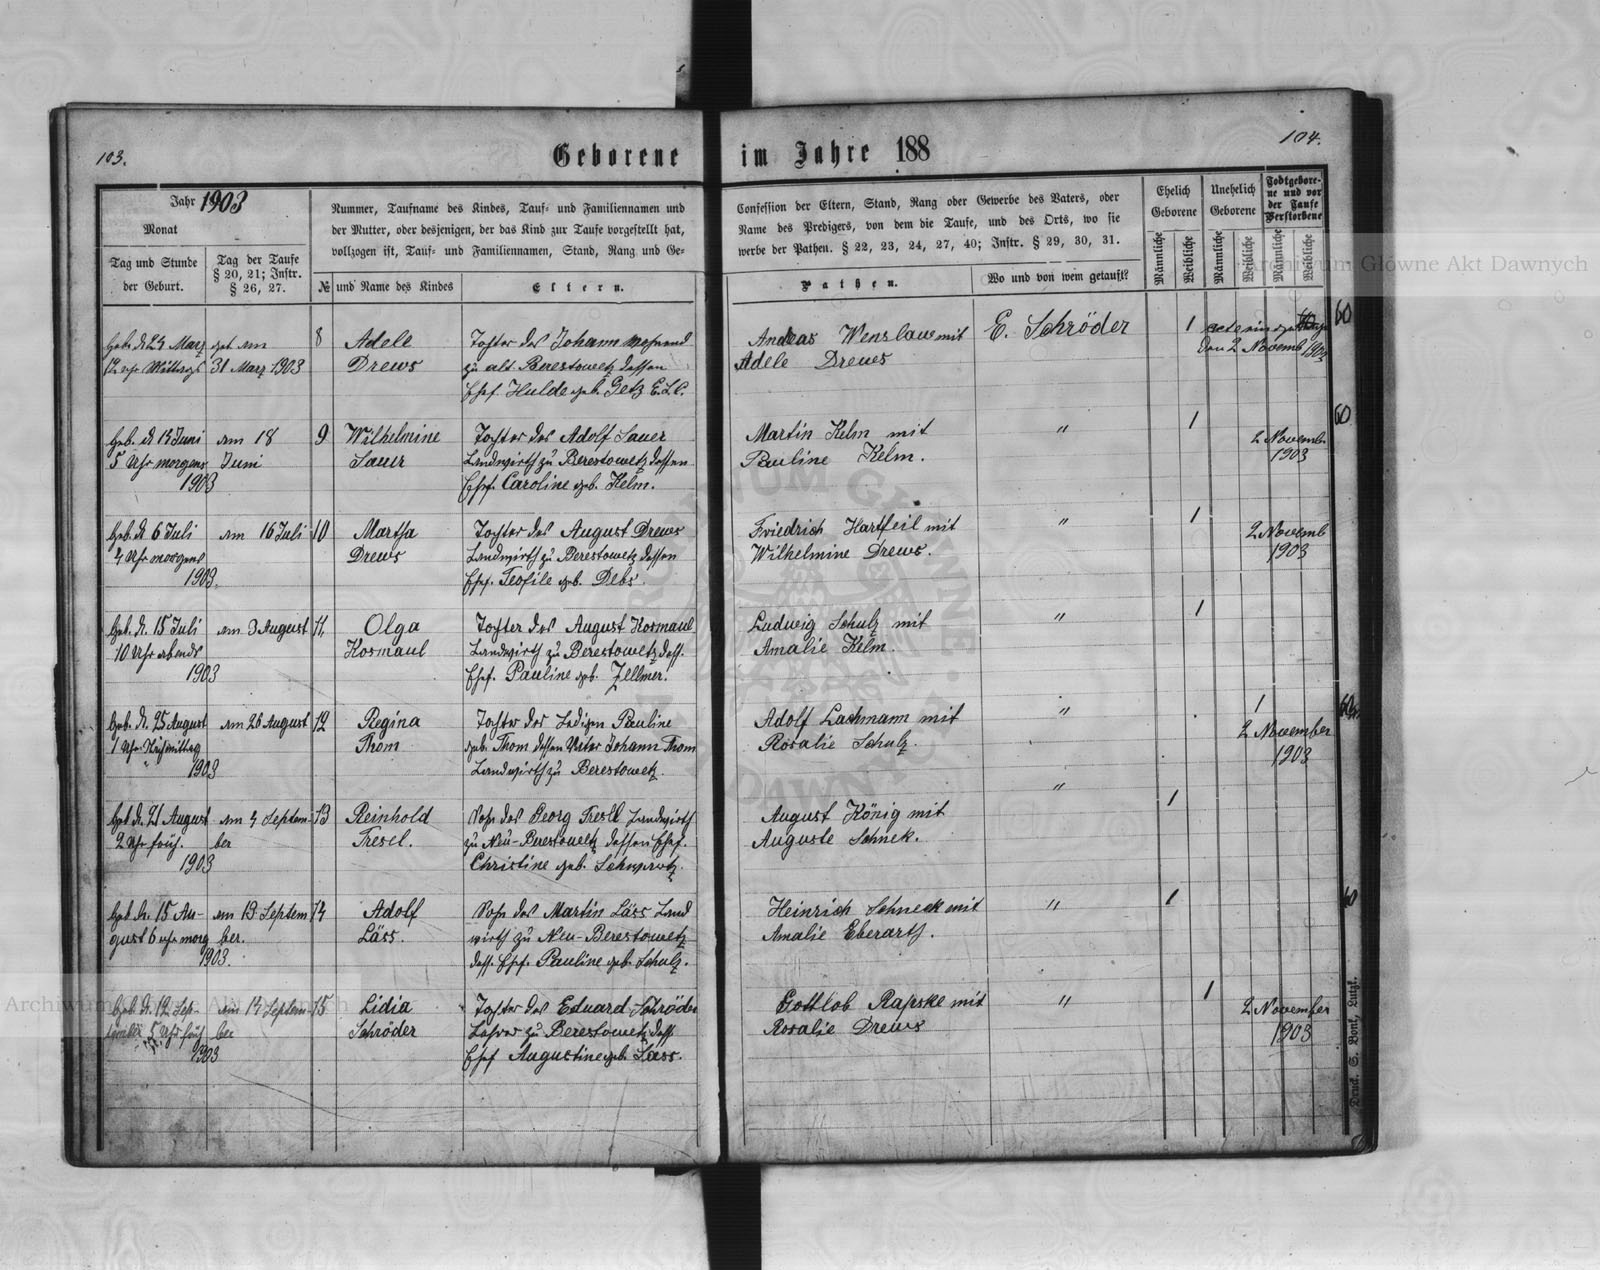 103.
Geborene
im Jahre 188
104.
Jahr 1903
Monat
Tag und Stunde
der Geburt.
Tag der Taufe
§ 20, 21; Instr.
§ 26, 27.
Nummer, Taufname des Kindes, Tauf- und Familiennamen und
der Mutter, oder desjenigen, der das Kind zur Taufe vorgestellt hat,
vollzogen ist, Tauf- und Familiennamen, Stand, Rang und Ge-
№ und Name des Kindes
Eltern.
Confession der Eltern, Stand, Rang oder Gewerbe des Vaters, oder
Name des Predigers, von dem die Taufe, und des Orts, wo sie
werbe der Pathen. § 22, 23, 24, 27, 40; Instr. § 29, 30, 31.
Pathen.
Wo und von wem getauft?
Ehelich
Geborene
Unehelich
Geborene
Todtgebore-
ne und vor
der Taufe
Verstorbene
Männliche
Weibliche
Männliche
Weibliche
Männliche
Weibliche
Geb. d. 24 März get. am 8 Adele Tochter des Johann
12 uhr Mittags 31 März 1903 Drews zu alt Berestowetz dessen
Ehef. Hulde geb. Getz E.L.C.
Andeas Wenslaw mit E. Schröder 1
Adele Drews den 2 Novemb 1903
60
Geb. d. 14 Juni am 18 9 Wilhelmine Tochter des Adolf Sauer
5 Uhr morgens Juni Sauer Landwirth zu Berestowetz dessen
1903 Ehef. Caroline geb. Kelm.
Martin Kelm mit " 1 2 Novemb
Pauline Kelm. 1903
60
Geb. d. 6 Juli am 16 Juli 10 Martha Tochter des August Drews
4 Uhr morgens Drews Landwirth zu Berestowetz dessen
1903. Ehef. Teofile geb. Debs.
Friedrich Hartfeil mit " 1 2 Novemb
Wilhelmine Drews. 1903
Geb. d. 15 Juli am 3 August 11. Olga Tochter des August Kosmaul
10 Uhr abends Kosmaul Landwirth zu Berestowetz dess.
1903 Ehef. Pauline geb. Zellmer.
Ludwig Schulz mit " 1
Amalie Kelm.
Geb. d. 25 August am 26 August 12 Regina Tochter der Ledigen Pauline
1 Uhr Nachmittag Thom geb. Thom dessen Vater Johann Thom
1903 Landwirth zu Berestowetz.
Adolf Lachmann mit " 1
Rosalie Schulz. 2 November
1903
Geb. d. 21 August am 4 Septem- 13 Reinhold Sohn des Georg Tresel Landwirth
2 Uhr früh. ber Tresel. zu Neu-Berestowetz dessen Ehef.
1903 Christine geb. Schwartz.
August König mit " 1
Auguste Schnek.
Geb. d. 15 Au- am 13 Septem 14 Adolf Sohn des Martin Läss Land
gust 6 uhr morg ber. Läss. wirth zu Neu-Berestowetz
1903. dess. Ehef. Pauline geb. Schulz.
Heinrich Schneck mit " 1
Amalie Eberarth.
60
Geb. d. 12 Sep- am 14 Septem 15 Lidia Tochter des Eduard Schröder
5 Uhr früh ber Schröder Lehrer zu Berestowetz dess.
1903 Ehef Augustine geb. Läss.
Gottlob Rapske mit " 1 2 November
Rosalie Drews 1903
Druck. S. Bont, Lutzk.
Archiwum Główne Akt Dawnych
Archiwum Główne Akt Dawnych